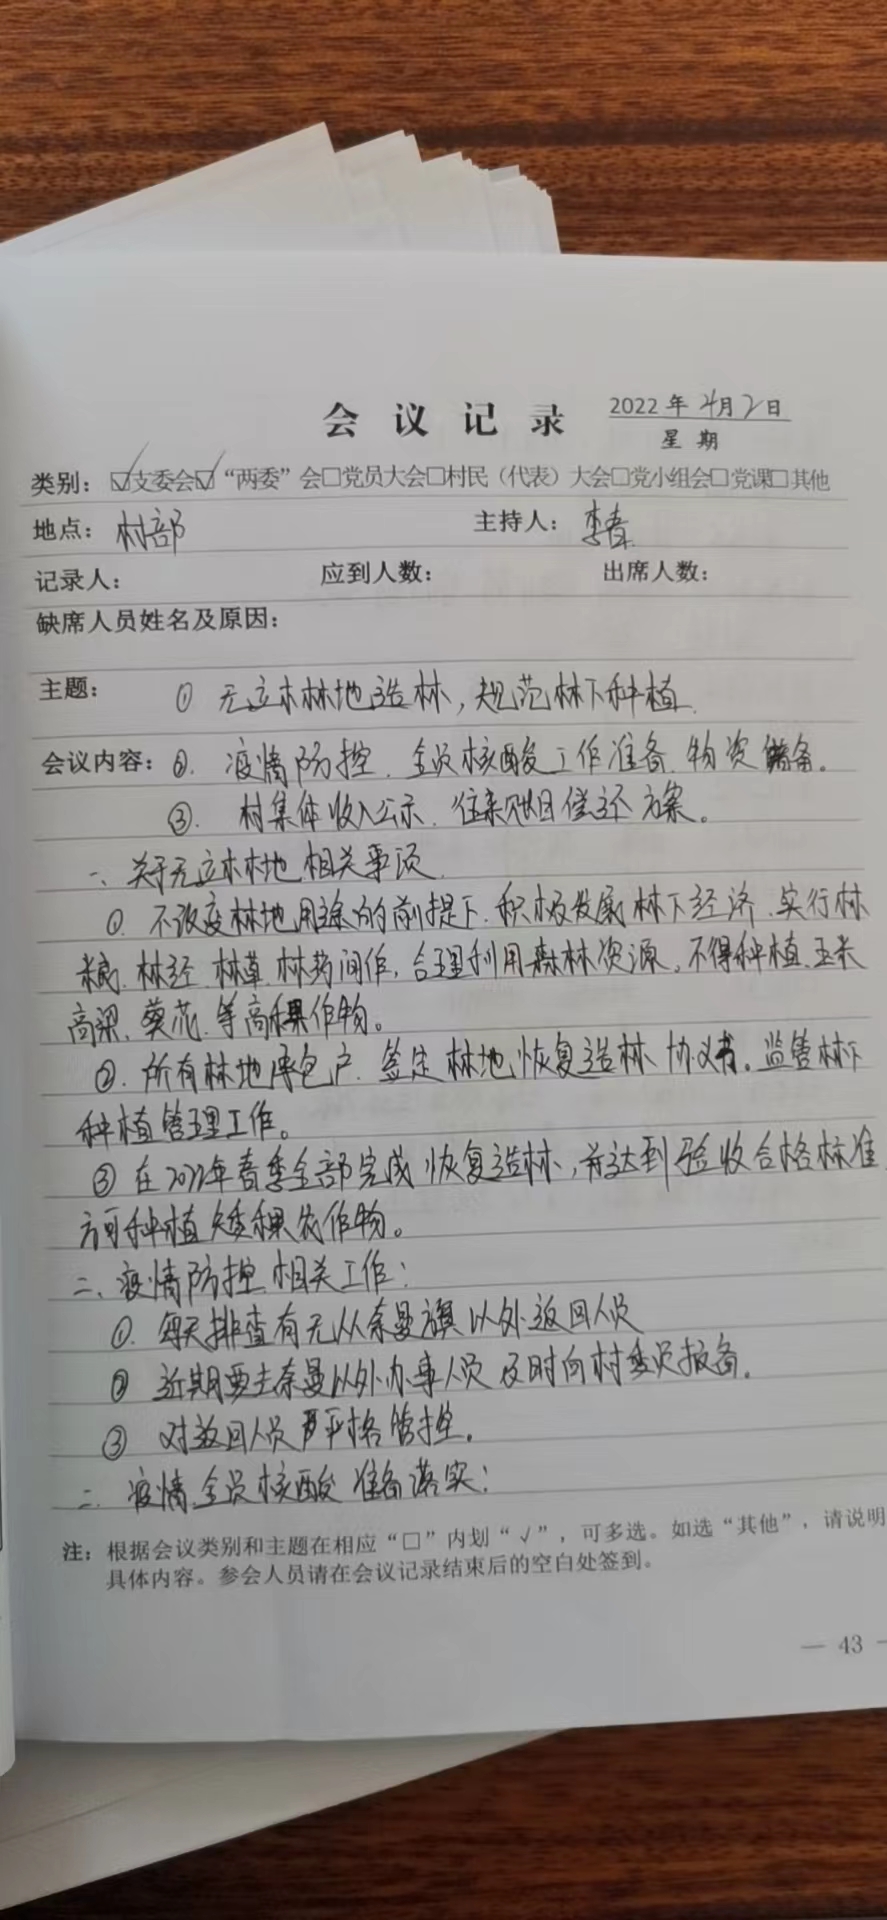 会议记录 2022年4月2日
星期
类别：☑支委会☑“两委”会□党员大会□村民（代表）大会□党小组会□党课□其他
地点：村部 主持人：李春
记录人： 应到人数： 出席人数：
缺席人员姓名及原因：
主题： ① 无立木林地造林，规范林下种植
会议内容：②. 疫情防控、全员核酸工作准备、物资储备。
③. 村集体收入公示、往来账目偿还方案。
一、关于无立木林地相关事项
①. 不改变林地用途的前提下、积极发展林下经济、实行林
粮、林经、林草、林药间作，合理利用森林资源。不得种植、玉米
高粱、葵花、等高棵作物。
②. 所有林地承包户、签定林地恢复造林协议书。监管林下
种植管理工作。
③ 在2022年春季全部完成恢复造林，并达到验收合格标准
方可种植矮棵农作物。
二、疫情防控相关工作：
①. 每天排查有无从奈曼旗以外返回人员
② 近期要去奈曼以外办事人员及时向村委员报备。
③ 对返回人员严格管控。
二、疫情全员核酸准备落实：
注：根据会议类别和主题在相应“□”内划“√”，可多选。如选“其他”，请说明
具体内容。参会人员请在会议记录结束后的空白处签到。
— 43 —